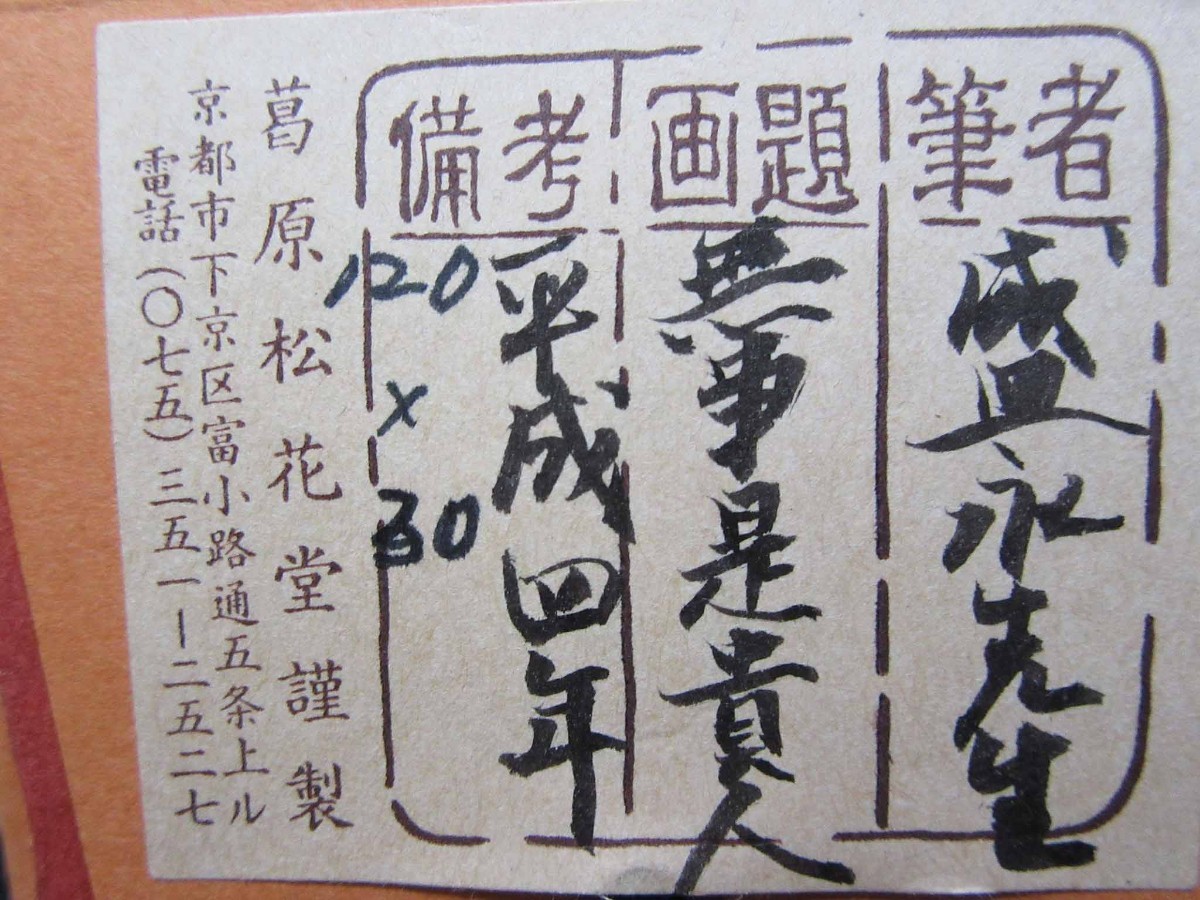 筆者
盛永先生
画題
無事是貴人
備考
平成四年
120
×
30
葛原松花堂謹製
京都市下京区富小路通五条上ル
電話(〇七五)三五一ー二五二七